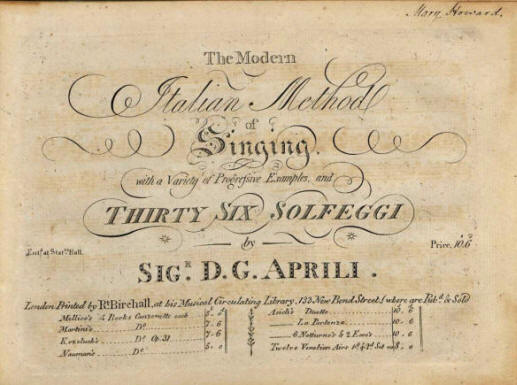 Mary Howard.
The Modern
Italian Method
of
Singing.
with a Variety of Progressive Examples, and
THIRTY SIX SOLFEGGI
by
Price, 10.6
Ent.d at Stat.rs Hall.
SIG.R D. G. APRILI.
London Printed by R.t Birchall, at his Musical Circulating Library, 133 New Bond Street, where are Pub.d & Sold
Millico's 4 Books Canzonetts each
Asioli's Duetts 10..6
Martini's D.o 7..6
La Partenza 10..6
Kozeluch's D.o Op. 31 7..6
6 Notturno's & 2 10..6
Nauman's D.o 5..0
Twelve Venetian Airs 1.st & 2.d Set 8..0